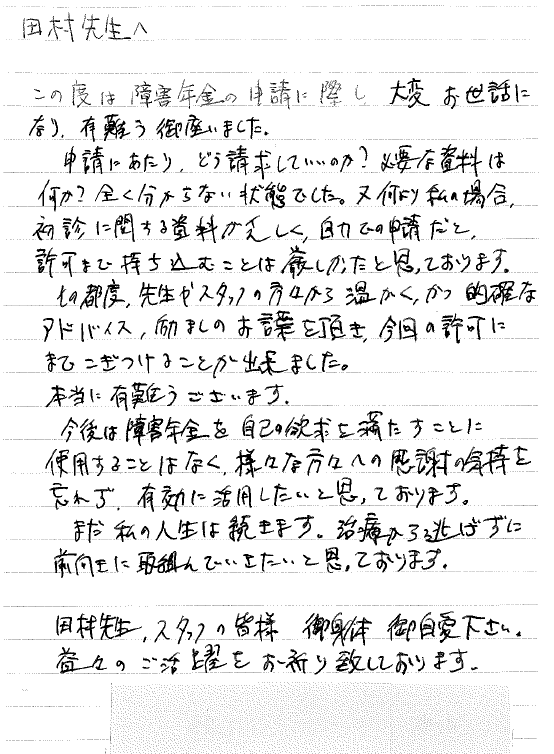 田村先生へ
この度は障害年金の申請に際し 大変 お世話に
なり、有難う御座いました。
申請にあたり、どう請求していいのか？必要な資料は
何か？全く分からない状態でした。又何より私の場合、
初診に関する資料が乏しく、自力での申請だと、
許可まで持ち込むことは厳しかったと思っております。
その都度、先生やスタッフの方々から温かく、かつ的確な
アドバイス、励ましのお言葉を頂き、今回の許可に
までこぎつけることが出来ました。
本当に有難うございます。
今後は障害年金を自己の欲求を満たすことに
使用することはなく、様々な方々への感謝の気持を
忘れず、有効に活用したいと思っております。
まだ私の人生は続きます。治療から逃ばずに
前向きに取組んでいきたいと思っております。
田村先生、スタッフの皆様 御身体 御自愛下さい。
益々のご活躍をお祈り致しております。